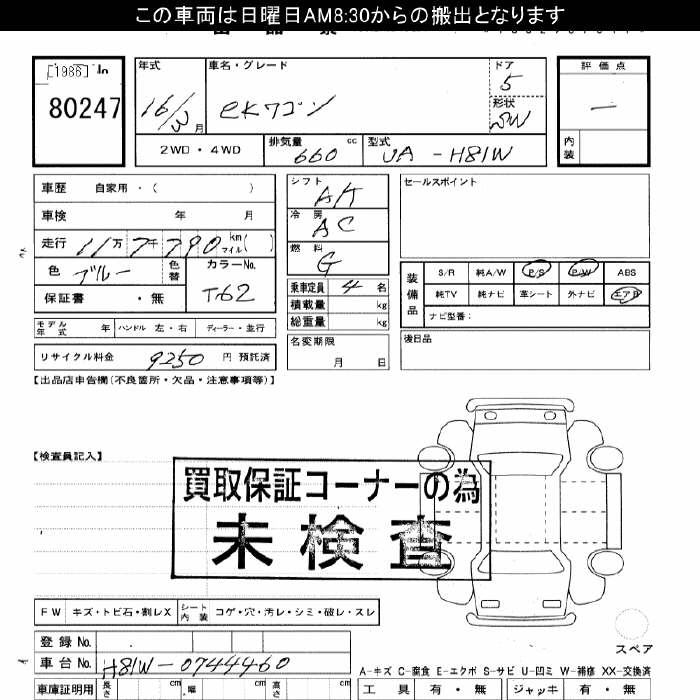 この車両は日曜日AM8:30からの搬出となります
[1986] In
80247
年式
16/3月
車名・グレード
eKワゴン
ドア
5
形状
SW
評価点
—
内装
2WD・4WD
排気量
660 cc
型式
UA-H81W
車歴 自家用・( )
車検 年 月
走行 11万7千790 km マイル( )
色 ブルー 色替
カラーNo. T62
保証書 ・無
モデル年式 年 ハンドル 左・右 ディーラー・並行
リサイクル料金 9250 円 預託済
シフト AT
冷房 AC
燃料 G
乗車定員 4 名
積載量 kg
総重量 kg
名変期限
月 日
セールスポイント
装備品
S/R 純A/W P/S P/W ABS
純TV 純ナビ 革シート 外ナビ エアB
ナビ型番:
後日品
【出品店申告欄(不良箇所・欠品・注意事項等)】
【検査員記入】
買取保証コーナーの為
未検査
FW キズ・トビ石・割レX シート内装 コゲ・穴・汚レ・シミ・破レ・スレ
スペア
登録 No.
車台 No. H81W-0744460
車庫証明用 長さ cm 幅 cm 高さ cm
A-キズ C-腐食 E-エクボ S-サビ U-凹ミ W-補修 XX-交換済
工具 有・無 ジャッキ 有・無